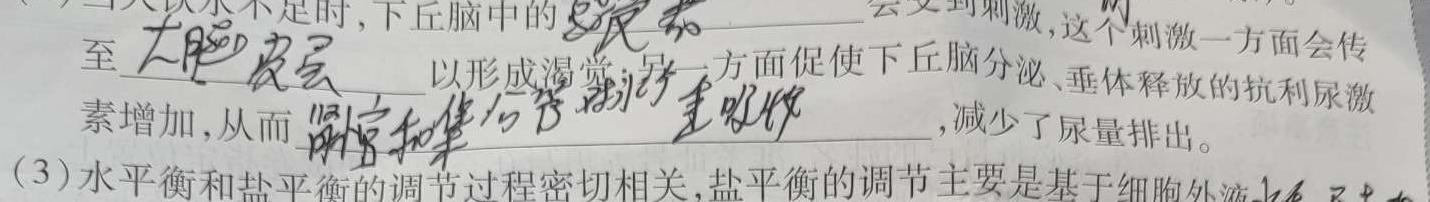 当人饮水不足时,下丘脑中的 会受到刺激,这个刺激一方面会传
至大脑皮层以形成渴觉,另一方面促使下丘脑分泌、垂体释放的抗利尿激
素增加,从而 和集合管 重吸收,减少了尿量排出。
(3)水平衡和盐平衡的调节过程密切相关,盐平衡的调节主要是基于细胞外液